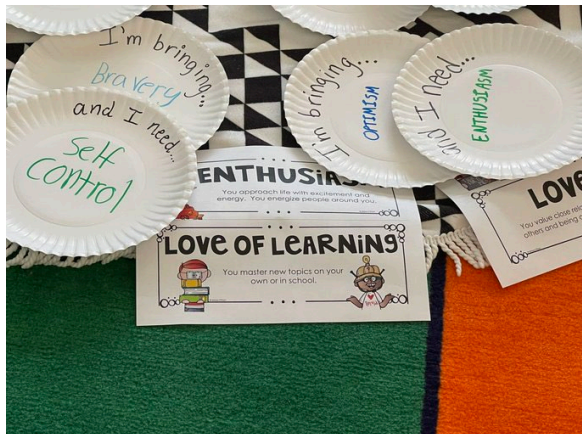 I'm bringing...
Bravery
and I need...
Self
Control
I'm bringing...
OPTIMISM
and I need...
ENTHUSIASM
ENTHUSIASM
You approach life with excitement and
energy. You energize people around you.
LOVE OF LEARNING
You master new topics on your
own or in school.
LOVE
You value close
others and being